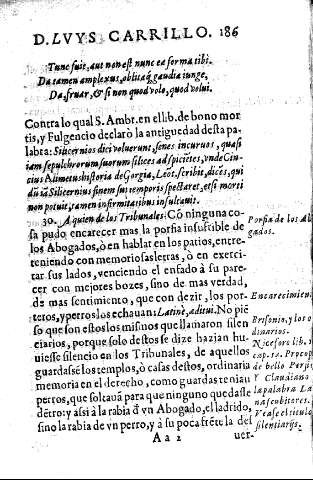 D. LVYS CARRILLO. 186
Tunc fuit, aut non est nunc ea forma tibi.
Da tamen amplexus, oblitaq; gaudia iunge,
Da, fruar, & si non quod volo, quod volui.
Contra lo qual S. Ambr. en el lib. de bono mor
tis, y Fulgencio declaro la antiguedad desta pa
labra: Silicernios dici voluerunt, senes incuruos, quasi
iam sepulchrorum suorum silices adspicietes, vnde Cin
cius Alimetus historia de Gorgia, Leot. scribit, dicēs, qui
dū iā Silicernius finem sui temporis spectaret, etsi morti
non potuit, tamen infirmitatibus insultauit.
30. A quien de los Tribunales. Cō ninguna co
sa pudo encarecer mas la porfia insufrible de
los Abogados, ò en hablar en los patios, entre-
teniendo con memorias a letras, ò en exerci-
tar sus lados, venciendo el enfado à su pare-
cer con mejores bozes, sino de mas verdad,
de mas sentimiento, que con dezir, los por-
teros, y perros los echauan: Latinè, aditui. No piē
so que son estos los mismos que llamaron silen
ciarios, porque solo destos se dize hazian hu-
uiesse silencio en los Tribunales, de aquellos
guardassē los templos, ò casas destos, ordinaria
memoria en el derecho, como guardas teniau
perros, que soltauā para que ninguno quedasse
dētro: y assi à la rabia d̄ vn Abogado, el ladrido,
sino la rabia de vn perro, y à su poca frēte la del
Aa 2 uer-
Porfia de los Abo
gados.
Encarecimien
Brisonio, y los o
dinarios.
Niceforo lib. 1
cap. 10. Procop
de bello Pers.
Y Claudiano
la palabra La
nascubitores.
Vease el titulo
silentiarijs.